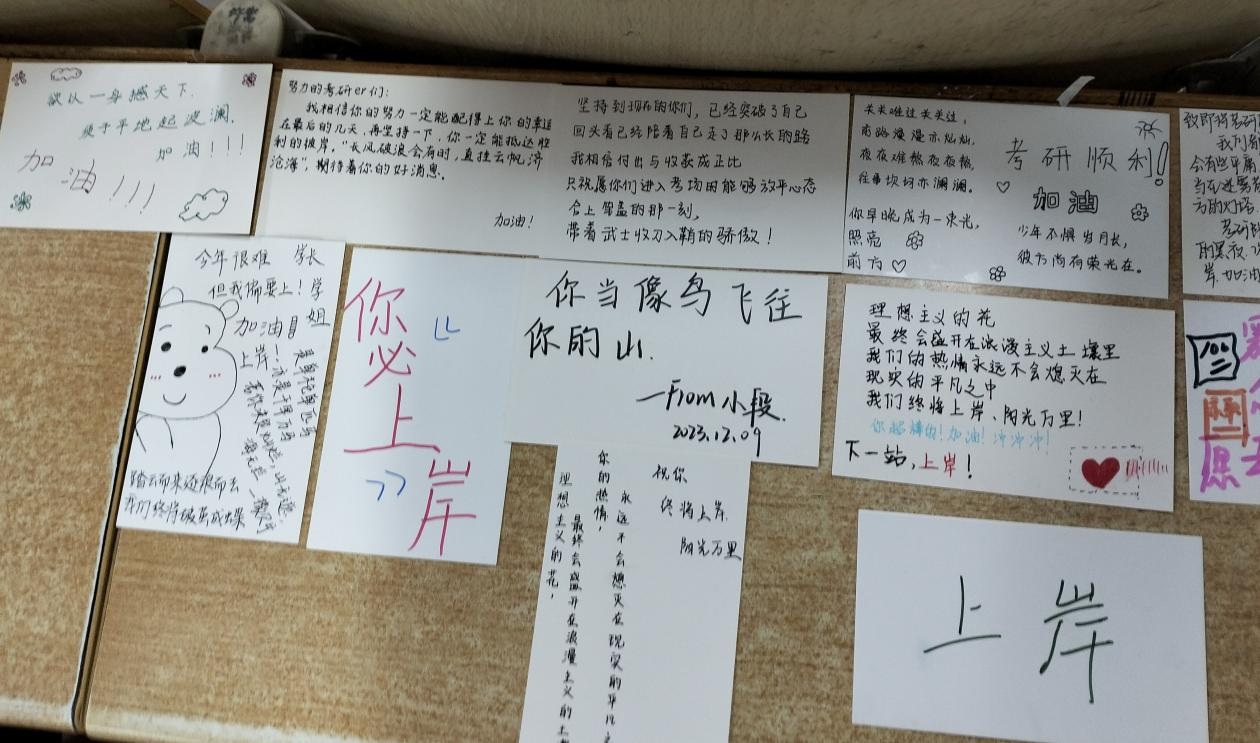 欲以一身撼天下.
便于平地起波澜.
加油!!!
加油!!!
努力的考研er们:
我相信你的努力一定能配得上你的幸运
在最后的几天,再坚持一下,你一定能抵达胜
利的彼岸。“长风破浪会有时,直挂云帆济
沧海”,期待着你的好消息。
加油!
坚持到现在的你们,已经突破了自己
回头看已经陪着自己走了那么长的路
我相信付出与收获成正比
只祝愿你们进入考场时能够放平心态
合上笔盖的那一刻,
带着武士收刀入鞘的骄傲!
关关难过关关过,
前路漫漫亦灿灿,
夜夜难熬夜夜熬,
往事坎坷亦澜澜。
你早晚成为一束光,
照亮
前方
考研顺利!
加油
少年不惧岁月长,
彼方尚有荣光在。
我们
会有些平庸
当在迷雾
方的灯塔
考研
岸.加油
今年很难
但我偏要上!
学长
学姐
加油!
上岸
踏云而来逐浪而去
我们终将破茧成蝶
你
必
上
岸
你当像鸟飞往
你的山.
—From 小段.
2023.12.09
理想主义的花
最终会盛开在浪漫主义土壤里
我们的热情永远不会熄灭在
现实的平凡之中
我们终将上岸、阳光万里!
你超棒的!加油!冲冲冲!
下一站,上岸!
祝你
终将上岸.
阳光万里
你的热情,
永远不会熄灭在现实的平凡之
理想主义的花,
最终会盛开在浪漫主义的土
上岸